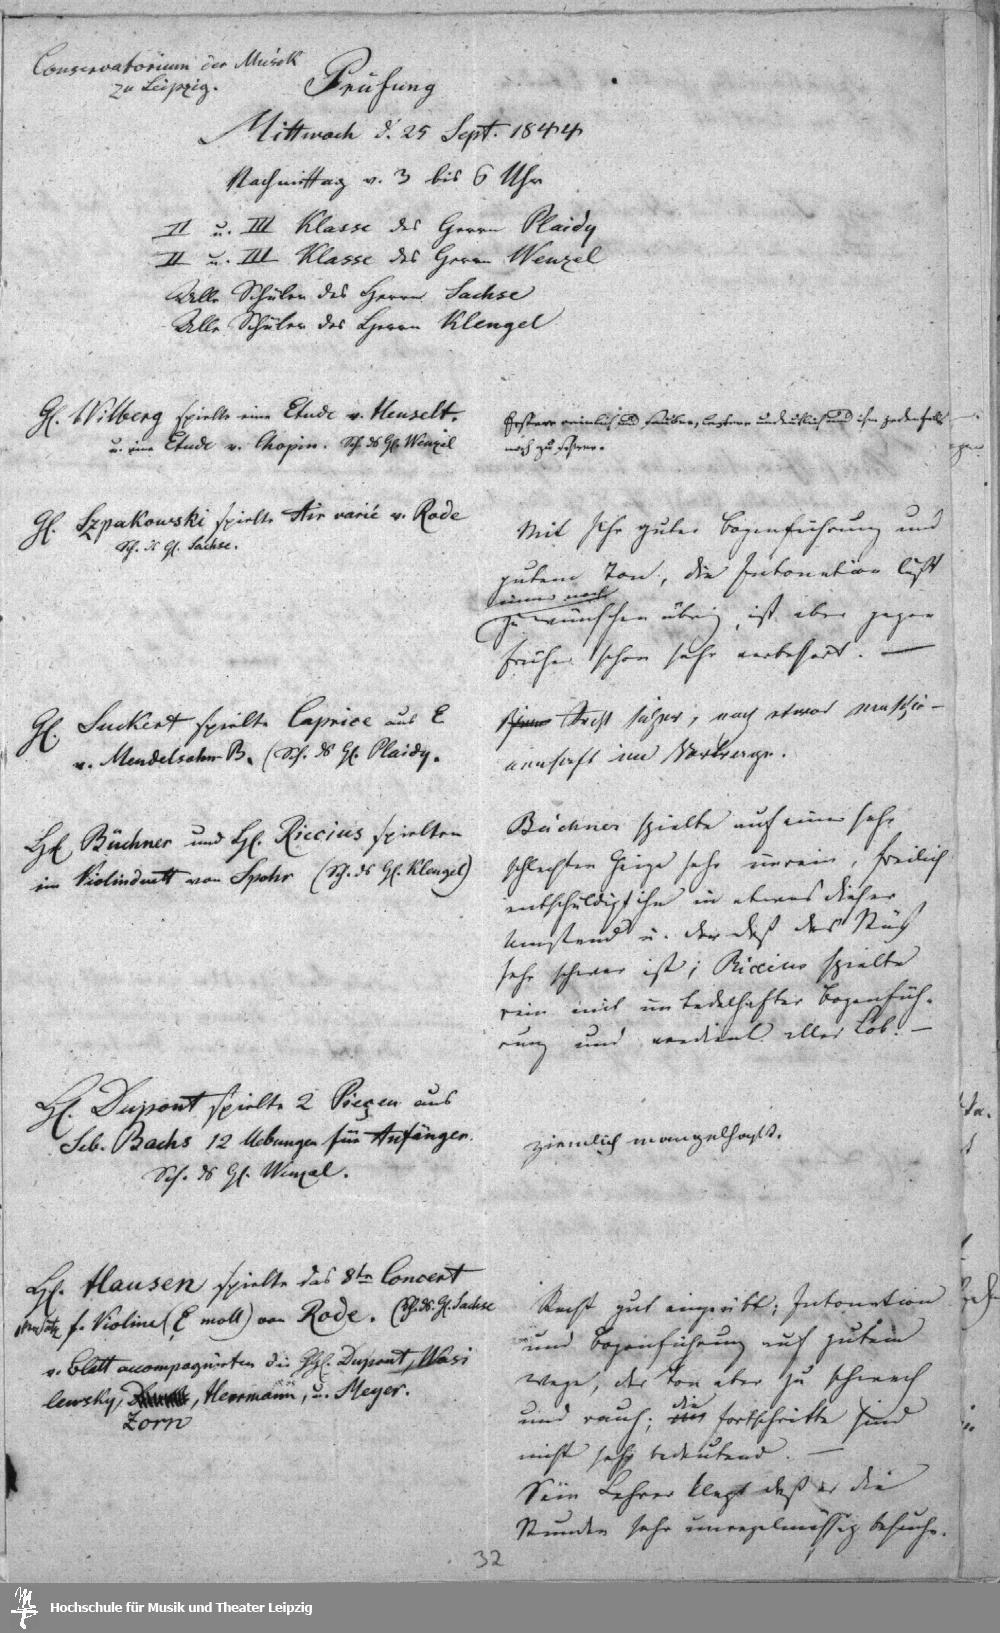 Conservatorium der Musik
zu Leipzig.
Prüfung
Mittwoch d. 25 Sept. 1844
Nachmittag v. 3 bis 6 Uhr
II u. III Klasse des Herrn Plaidy
II u. III Klasse des Herrn Wenzel
Alle Schüler des Herrn Sachse
Alle Schüler des Herrn Klengel
H. Wilberg spielte eine Etude v. Henselt.
u. eine Etude v. Chopin. Sch. d. H. Wenzel
Erstere reinlich und sauber, letztere undeutlich und ihm jedenfalls
noch zu schwer.
H. Szpakowski spielte Air varié v. Rode
Sch. d. H. Sachse.
Mit sehr guter Bogenführung und
gutem Ton, die Intonation läßt
immer noch
zu wünschen übrig, ist aber gegen
früher schon sehr verbessert. —
H. Suckert spielte Caprice aus E
v. Mendelsohn B. (Sch. d. H. Plaidy.
Recht sicher, noch etwas maschi-
nenhaft im Vortrage.
HH. Büchner und H. Riccius spielten
ein Violinduett von Spohr (Sch. d. H. Klengel)
Büchner spielte auf einer sehr
schlechten Geige sehr unrein, freilich
entschuldigt ihn in etwas dieser
Umstand u. daß das Stück
sehr schwer ist; Riccius spielte
rein mit untadelhafter Bogenfüh-
rung und verdient alles Lob. —
H. Dupont spielte 2 Pieçen aus
Seb. Bachs 12 Uebungen für Anfänger.
Sch. d. H. Wenzel.
ziemlich mangelhaft.
H. Hausen spielte das 8te Concert
1ten Satz f. Violine (E moll) von Rode. (Sch. d. H. Sachse
v. Blatt accompagnirten die HH. Dupont, Wasi
lewsky, Herrmann, u. Meyer.
Zorn
Recht gut eingeübt; Intonation
und Bogenführung auf gutem
Wege, der Ton aber zu schwach
und rauh; die Fortschritte sind
nicht sehr bedeutend. —
Sein Lehrer klagt daß er die
Stunden sehr unregelmässig besuche.
32
Hochschule für Musik und Theater Leipzig